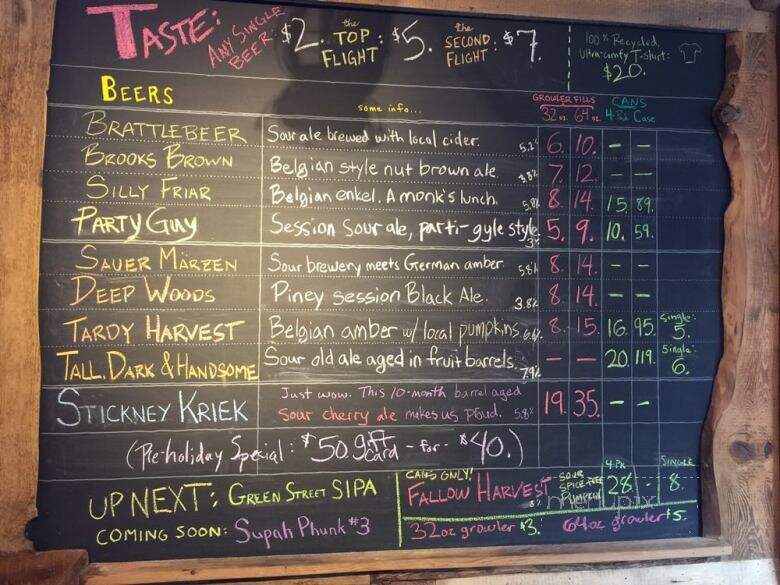 TASTE: ANY SINGLE BEER: $2. the TOP FLIGHT: $5. the SECOND FLIGHT: $7.
100% Recycled, Ultra-comfy T-shirt: $20.
BEERS some info... GROWLER FILLS 32 oz. 64 oz. CANS 4 Pack Case
BRATTLEBEER Sour ale brewed with local cider. 5.2% 6. 10. - -
BROOKS BROWN Belgian style nut brown ale 7. 12. - -
SILLY FRIAR Belgian enkel. A monk's lunch. 8. 14. 15. 89.
PARTY GUY Session Sour ale, parti-gyle style. 5. 9. 10. 59.
SAUER MÄRZEN Sour brewery meets German amber. 8. 14. - -
DEEP WOODS Piney session Black Ale. 3.8% 8. 14. - -
TARDY HARVEST Belgian amber w/ local pumpkins. 8. 15. 16. 95. Single: 5.
TALL, DARK & HANDSOME Sour old ale aged in fruit barrels. 7.9% - - 20. 119. Single: 6.
STICKNEY KRIEK Just wow. This 10-month barrel aged
sour cherry ale makes us proud. 5.8% 19. 35. - -
(Pre-holiday Special: $50 gift card - for - $40.)
UP NEXT: GREEN STREET SIPA
COMING SOON: Supah Phunk #3
CANS ONLY!
FALLOW HARVEST 8% SOUR SPICE-FREE PUMPKIN 4 PK 28 - SINGLE 8.
32oz growler $3. 64oz growler $5.
menupix